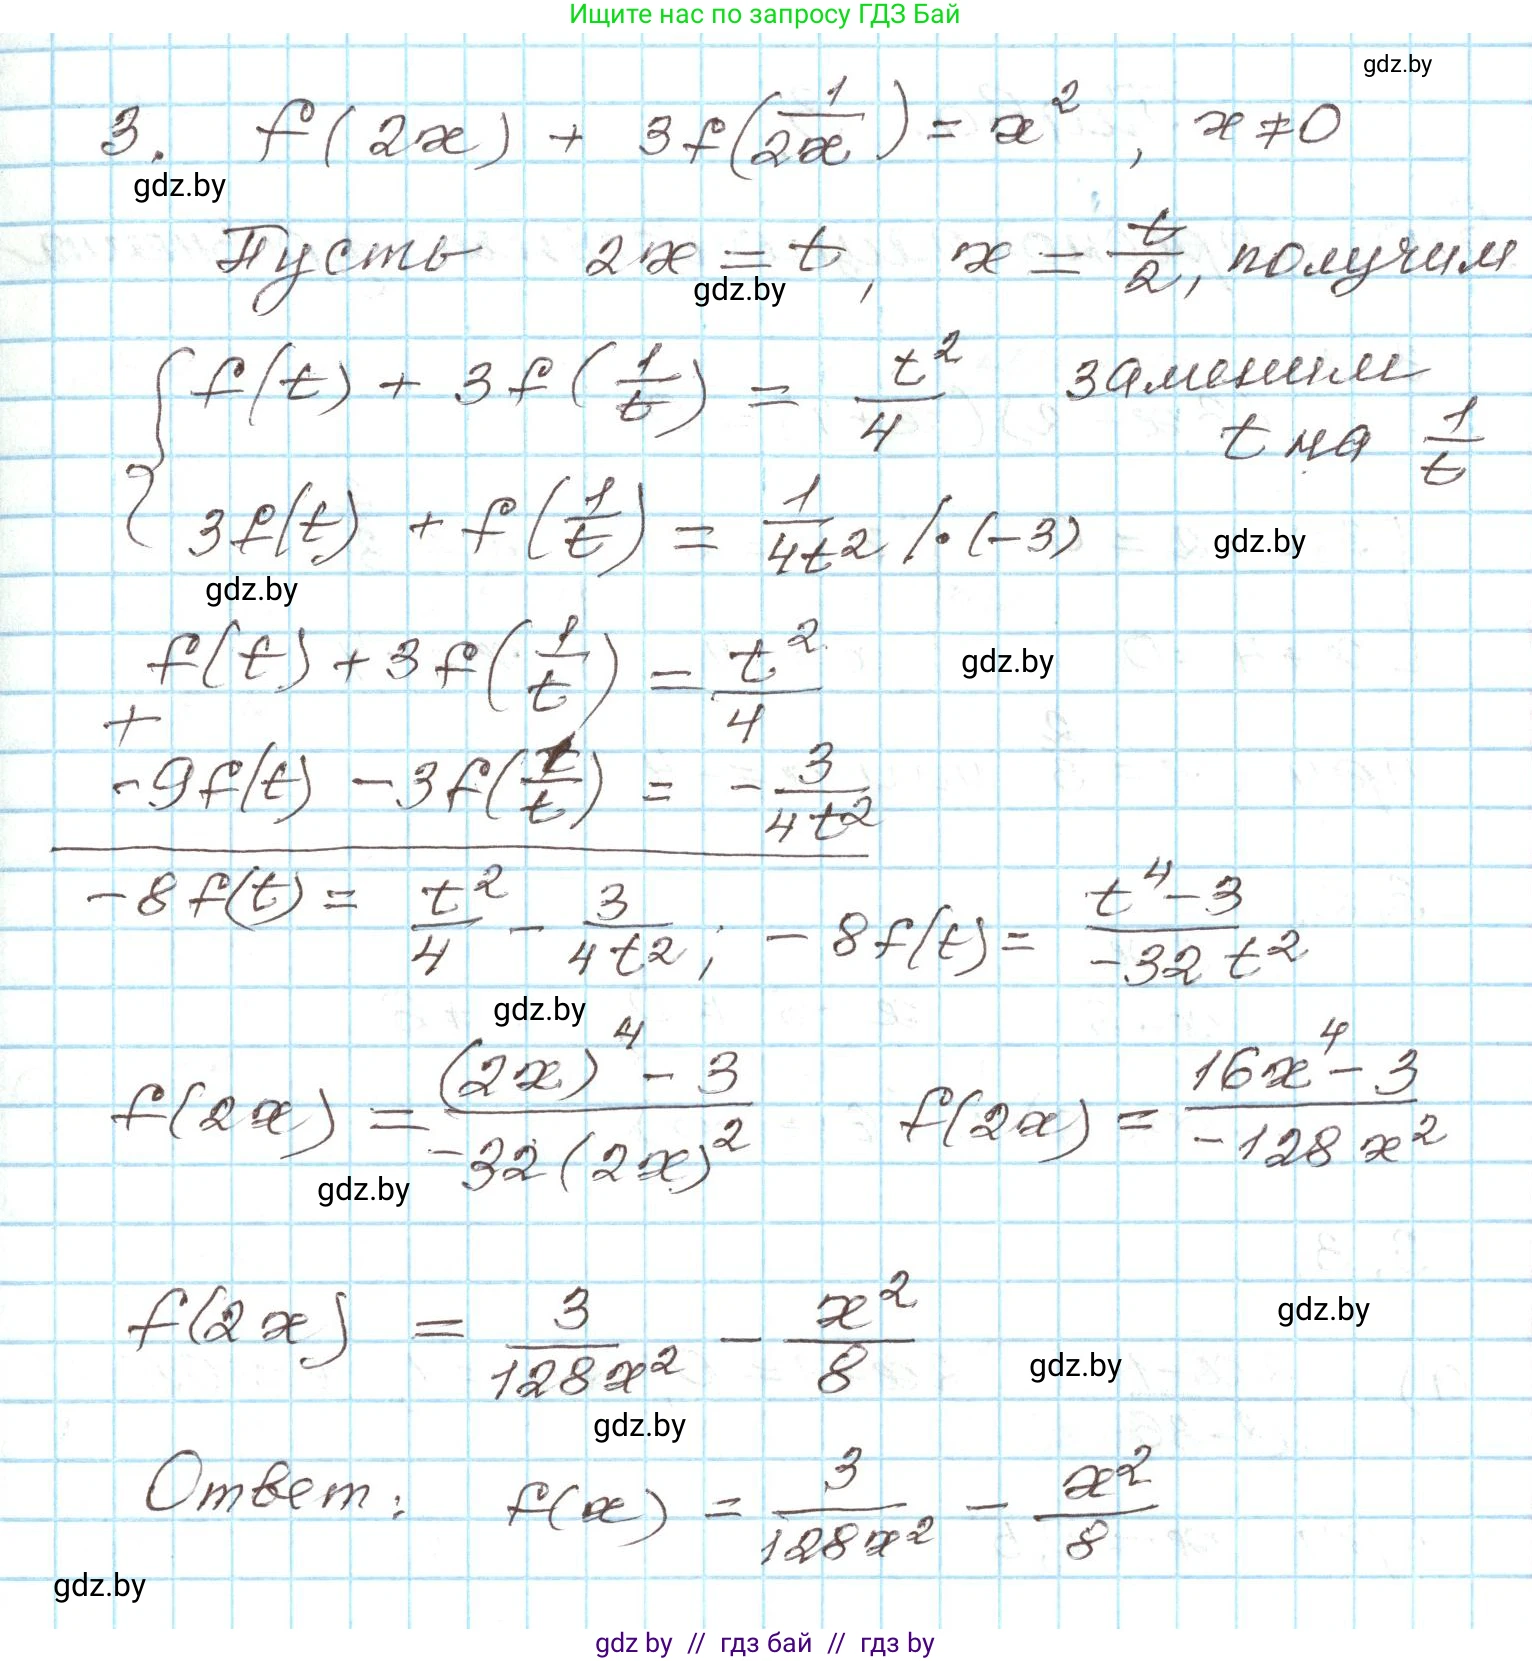 Ищите нас по запросу ГДЗ Бай
gdz.by
3. f(2x) + 3f(1/(2x)) = x², x ≠ 0
gdz.by
Пусть 2x = t, x = t/2, получим
gdz.by
{ f(t) + 3f(1/t) = t²/4 заменим
t на 1/t
3f(t) + f(1/t) = 1/(4t²) /·(-3)
gdz.by
gdz.by
f(t) + 3f(1/t) = t²/4
gdz.by
+
-9f(t) - 3f(1/t) = -3/(4t²)
-8f(t) = t²/4 - 3/(4t²); -8f(t) = (t⁴-3)/(-32t²)
gdz.by
f(2x) = ((2x)⁴ - 3)/(-32(2x)²) f(2x) = (16x⁴ - 3)/(-128x²)
gdz.by
f(2x) = 3/(128x²) - x²/8
gdz.by
gdz.by
gdz.by
Ответ: f(x) = 3/(128x²) - x²/8
gdz.by
gdz by // гдз бай // гдз by